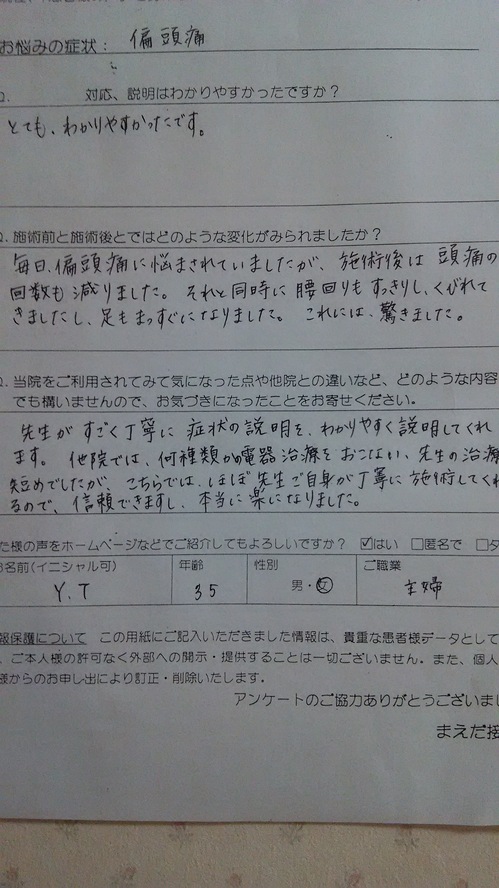 お悩みの症状： 偏頭痛
対応、説明はわかりやすかったですか？
とても、わかりやすかったです。
施術前と施術後とではどのような変化がみられましたか？
毎日、偏頭痛に悩まされていましたが、施術後は頭痛の
回数も減りました。それと同時に腰回りもすっきりし、くびれて
きましたし、足もまっすぐになりました。これには、驚きました。
当院をご利用されてみて気になった点や他院との違いなど、どのような内容
でも構いませんので、お気づきになったことをお寄せください。
先生がすごく丁寧に症状の説明を、わかりやすく説明してくれ
ます。他院では、何種類かの電器治療をおこない、先生の治療
短めでしたが、こちらでは、ほぼ先生ご自身が丁寧に施術してくれ
るので、信頼できますし、本当に楽になりました。
た様の声をホームページなどでご紹介してもよろしいですか？ ☑はい □匿名で □
名前(イニシャル可) 年齢 性別 ご職業
Y.T 35 男・女 主婦
報保護について この用紙にご記入いただきました情報は、貴重な患者様データとして
、ご本人様の許可なく外部への開示・提供することは一切ございません。また、個人
様からのお申し出により訂正・削除いたします。
アンケートのご協力ありがとうございまし
まえだ接